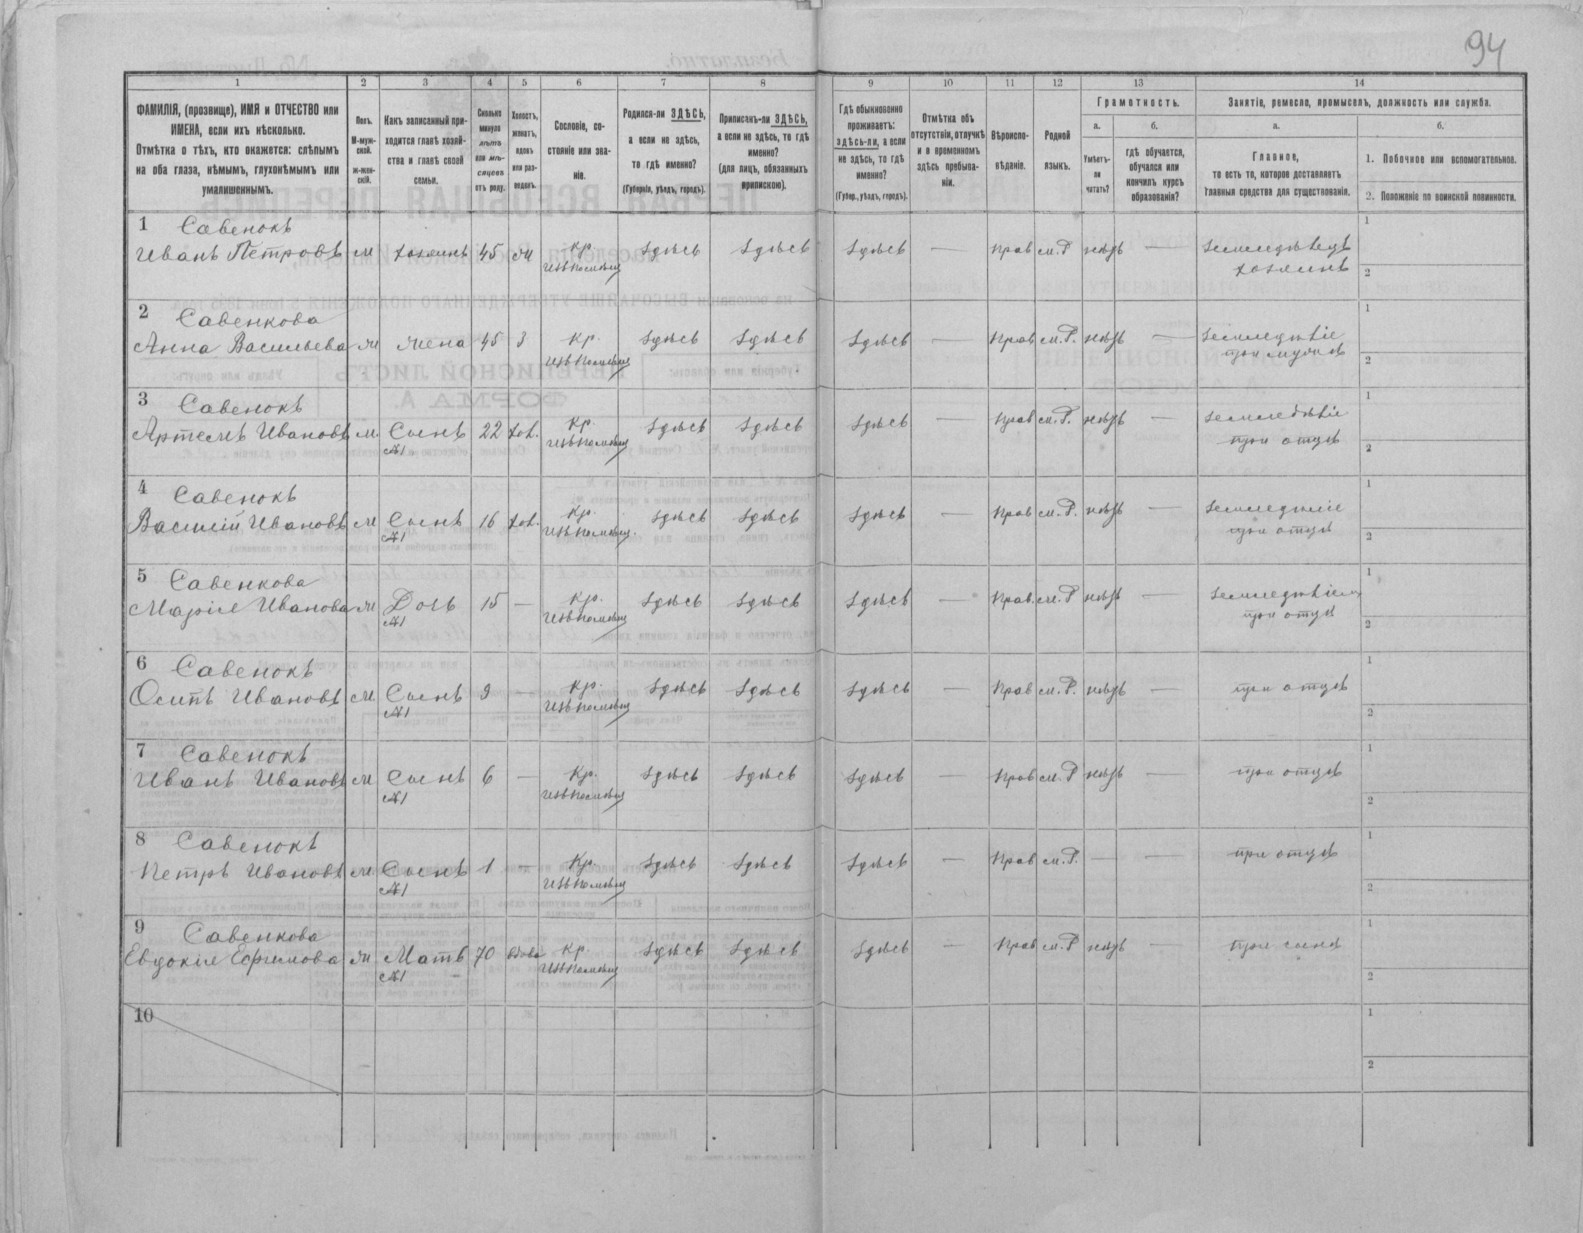 94
1 2 3 4 5 6 7 8 9 10 11 12 13 14
ФАМИЛІЯ, (прозвище), ИМЯ и ОТЧЕСТВО или
ИМЕНА, если ихъ нѣсколько.
Отмѣтка о тѣхъ, кто окажется: слѣпымъ
на оба глаза, нѣмымъ, глухонѣмымъ или
умалишеннымъ.
Полъ.
М-муж-
ской.
ж-жен-
скій.
Какъ записанный при-
ходится главѣ хозяй-
ства и главѣ своей
семьи.
Сколько
минуло
лѣтъ
или мѣ-
сяцевъ
отъ роду.
Холостъ,
женатъ,
вдовъ
или раз-
веденъ.
Сословіе, со-
стояніе или зва-
ніе.
Родился-ли ЗДѢСЬ,
а если не здѣсь,
то гдѣ именно?
(Губернія, уѣздъ, городъ).
Приписанъ-ли ЗДѢСЬ,
а если не здѣсь, то гдѣ
именно?
(для лицъ, обязанныхъ
припискою).
Гдѣ обыкновенно
проживаетъ:
здѣсь-ли, а если
не здѣсь, то гдѣ
именно?
(Губер., уѣздъ, городъ).
Отмѣтка объ
отсутствіи, отлучкѣ
и о временномъ
здѣсь пребыва-
ніи.
Вѣроиспо-
вѣданіе.
Родной
языкъ.
Грамотность.
а.
Умѣетъ-
ли
читать?
б.
гдѣ обучается,
обучался или
кончилъ курсъ
образованія?
Занятіе, ремесло, промыселъ, должность или служба.
а.
Главное,
то есть то, которое доставляетъ
главныя средства для существованія.
б.
1. Побочное или вспомогательное.
2. Положеніе по воинской повинности.
1 Савенокъ
Иванъ Петровъ м хозяинъ 45 Кр. здѣсь здѣсь здѣсь — Прав м.Р. —
Земледѣлецъ
хозяинъ
1
2
2 Савенкова
Анна Васильева жена 45 з Кр. здѣсь здѣсь здѣсь — Прав м.Р. —
Земледѣліе
при мужѣ
1
2
3 Савенокъ
Артемъ Ивановъ м. Сынъ 22 хол. Кр. здѣсь здѣсь здѣсь — Прав м.Р. —
№1
Земледѣліе
при отцѣ
1
2
4 Савенокъ
Василій Ивановъ м Сынъ 16 хол. Кр. здѣсь здѣсь здѣсь — Прав м.Р. —
№1
Земледѣліе
при отцѣ
1
2
5 Савенкова
Марія Иванова Дочь 15 — Кр. здѣсь здѣсь здѣсь — Прав. м.Р. —
№1
Земледѣліе
при отцѣ
1
2
6 Савенокъ
Осипъ Ивановъ м Сынъ 9 — Кр. здѣсь здѣсь здѣсь — Прав м.Р. — при отцѣ
№1
1
2
7 Савенокъ
Иванъ Ивановъ м Сынъ 6 — Кр. здѣсь здѣсь здѣсь — Прав м.Р — при отцѣ
№1
1
2
8 Савенокъ
Петръ Ивановъ м Сынъ 1 — Кр. здѣсь здѣсь здѣсь — Прав м.Р. — — при отцѣ
№1
1
2
9 Савенкова
Евдокія Ефимова Мать 70 вдова Кр. здѣсь здѣсь здѣсь — Прав м.Р — при сынѣ
№1
1
2
10
1
2